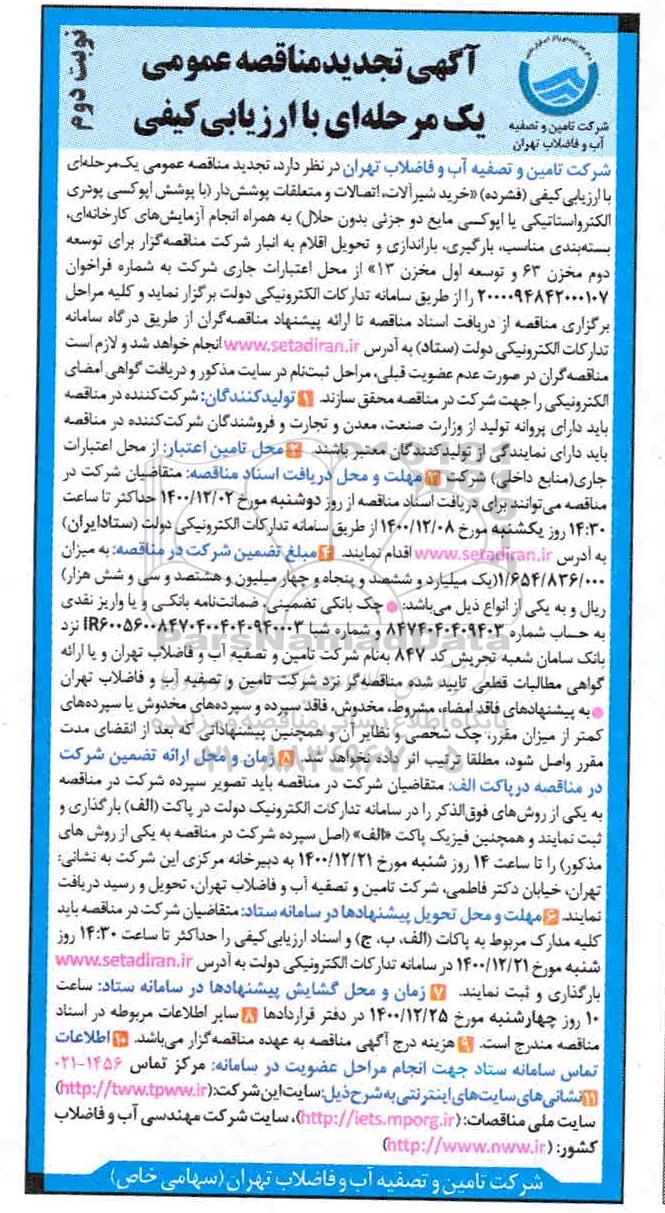 نوبت دوم
آگهی تجدید مناقصه عمومی
یک مرحله‌ای با ارزیابی کیفی
شرکت تامین و تصفیه
آب و فاضلاب تهران
شرکت تامین و تصفیه آب و فاضلاب تهران در نظر دارد، تجدید مناقصه عمومی یک‌مرحله‌ای
با ارزیابی کیفی (فشرده) «خرید شیرآلات، اتصالات و متعلقات پوشش‌دار (با پوشش اپوکسی پودری
الکترواستاتیکی یا اپوکسی مایع دو جزئی بدون حلال) به همراه انجام آزمایش‌های کارخانه‌ای،
بسته‌بندی مناسب، بارگیری، باراندازی و تحویل اقلام به انبار شرکت مناقصه‌گزار برای توسعه
دوم مخزن ۶۳ و توسعه اول مخزن ۱۳» از محل اعتبارات جاری شرکت به شماره فراخوان
۲۰۰۰۰۹۴۸۴۲۰۰۰۱۰۷ را از طریق سامانه تدارکات الکترونیکی دولت برگزار نماید و کلیه مراحل
برگزاری مناقصه از دریافت اسناد مناقصه تا ارائه پیشنهاد مناقصه‌گران از طریق درگاه سامانه
تدارکات الکترونیکی دولت (ستاد) به آدرس www.setadiran.ir انجام خواهد شد و لازم است
مناقصه‌گران در صورت عدم عضویت قبلی، مراحل ثبت‌نام در سایت مذکور و دریافت گواهی امضای
الکترونیکی را جهت شرکت در مناقصه محقق سازند. ۱ تولیدکنندگان: شرکت‌کننده در مناقصه
باید دارای پروانه تولید از وزارت صنعت، معدن و تجارت و فروشندگان شرکت‌کننده در مناقصه
باید دارای نمایندگی از تولیدکنندگان معتبر باشند. ۲ محل تامین اعتبار: از محل اعتبارات
جاری(منابع داخلی) شرکت ۳ مهلت و محل دریافت اسناد مناقصه: متقاضیان شرکت در
مناقصه می‌توانند برای دریافت اسناد مناقصه از روز دوشنبه مورخ ۱۴۰۰/۱۲/۰۲ حداکثر تا ساعت
۱۴:۳۰ روز یکشنبه مورخ ۱۴۰۰/۱۲/۰۸ از طریق سامانه تدارکات الکترونیکی دولت (ستادایران)
به آدرس www.setadiran.ir اقدام نمایند. ۴ مبلغ تضمین شرکت در مناقصه: به میزان
۱/۶۵۴/۸۳۶/۰۰۰(یک میلیارد و ششصد و پنجاه و چهار میلیون و هشتصد و سی و شش هزار)
ریال و به یکی از انواع ذیل می‌باشد: ● چک بانکی تضمینی، ضمانت‌نامه بانکی و یا واریز نقدی
به حساب شماره ۸۴۷۴۰۴۰۴۰۹۴۰۳ و شماره شبا IR۶۰۰۵۶۰۰۸۴۷۰۴۰۰۴۰۴۰۹۴۰۰۰۳ نزد
بانک سامان شعبه تجریش کد ۸۴۷ به‌نام شرکت تامین و تصفیه آب و فاضلاب تهران و یا ارائه
گواهی مطالبات قطعی تایید شده مناقصه‌گر نزد شرکت تامین و تصفیه آب و فاضلاب تهران
● به پیشنهادهای فاقد امضاء، مشروط، مخدوش، فاقد سپرده و سپرده‌های مخدوش یا سپرده‌های
کمتر از میزان مقرر، چک شخصی و نظایر آن و همچنین پیشنهاداتی که بعد از انقضای مدت
مقرر واصل شود، مطلقا ترتیب اثر داده نخواهد شد. ۸ زمان و محل ارائه تضمین شرکت
در مناقصه در پاکت الف: متقاضیان شرکت در مناقصه باید تصویر سپرده شرکت در مناقصه
به یکی از روش‌های فوق‌الذکر را در سامانه تدارکات الکترونیک دولت در پاکت (الف) بارگذاری و
ثبت نمایند و همچنین فیزیک پاکت «الف» (اصل سپرده شرکت در مناقصه به یکی از روش های
مذکور) را تا ساعت ۱۴ روز شنبه مورخ ۱۴۰۰/۱۲/۲۱ به دبیرخانه مرکزی این شرکت به نشانی:
تهران، خیابان دکتر فاطمی، شرکت تامین و تصفیه آب و فاضلاب تهران، تحویل و رسید دریافت
نمایند. ۶ مهلت و محل تحویل پیشنهادها در سامانه ستاد: متقاضیان شرکت در مناقصه باید
کلیه مدارک مربوط به پاکات (الف، ب، ج) و اسناد ارزیابی کیفی را حداکثر تا ساعت ۱۴:۳۰ روز
شنبه مورخ ۱۴۰۰/۱۲/۲۱ در سامانه تدارکات الکترونیکی دولت به آدرس www.setadiran.ir
بارگذاری و ثبت نمایند. ۷ زمان و محل گشایش پیشنهادها در سامانه ستاد: ساعت
۱۰ روز چهارشنبه مورخ ۱۴۰۰/۱۲/۲۵ در دفتر قراردادها ۸ سایر اطلاعات مربوطه در اسناد
مناقصه مندرج است. ۹ هزینه درج آگهی مناقصه به عهده مناقصه‌گزار می‌باشد. ۱۰ اطلاعات
تماس سامانه ستاد جهت انجام مراحل عضویت در سامانه: مرکز تماس ۱۴۵۶-۰۲۱
۱۱ نشانی‌های سایت‌های اینترنتی به شرح ذیل: سایت این شرکت: (http://tww.tpww.ir)
سایت ملی مناقصات: (http://iets.mporg.ir)، سایت شرکت مهندسی آب و فاضلاب
کشور: (http://www.nww.ir)
شرکت تامین و تصفیه آب و فاضلاب تهران (سهامی خاص)
ParsNamadData
پایگاه اطلاع رسانی مناقصه و مزایده
۰۲۱-۸۸۳۴۹۶۷۰-۵